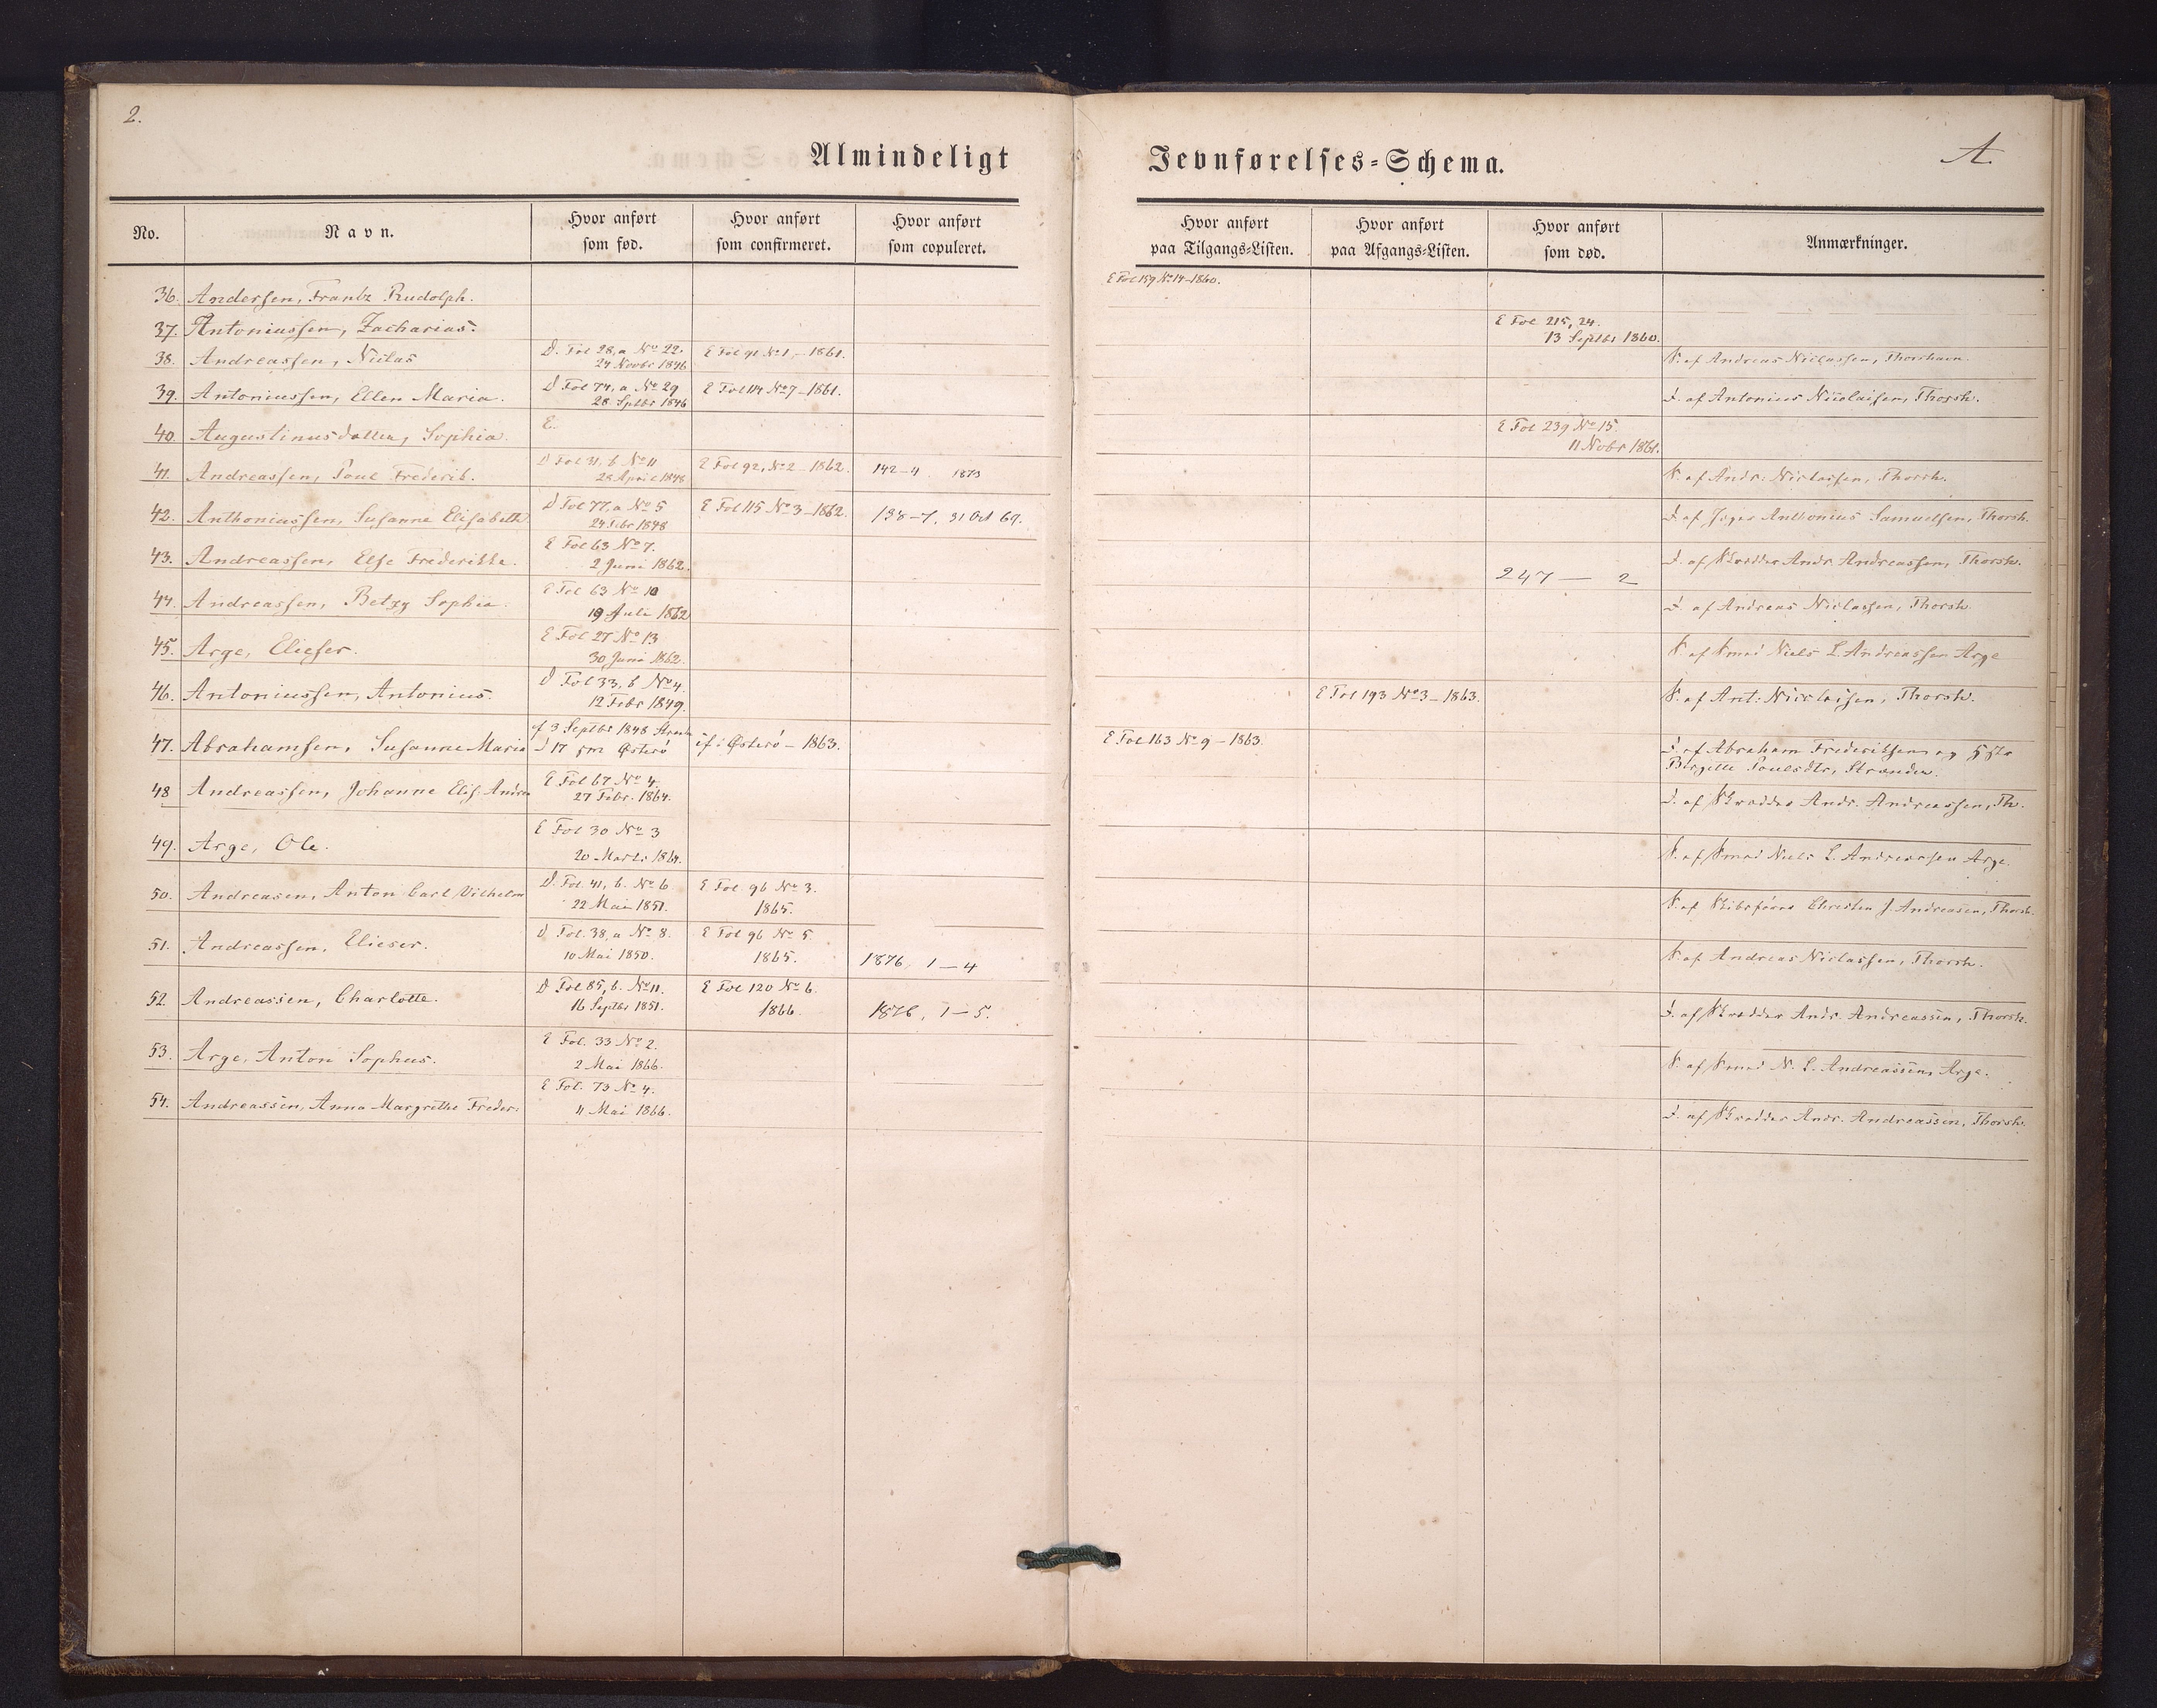 2.
Almindeligt Jevnførelses-Schema.
A.
No. Navn. Hvor anført som fød. Hvor anført som confirmeret. Hvor anført som copuleret. Hvor anført paa Tilgangs-Listen. Hvor anført paa Afgangs-Listen. Hvor anført som død. Anmærkninger.
36. Andersen, Frantz Rudolph. E Fol 159 No 14-1860.
37. Antoniussen, Zacharias. E Fol 215, 24. 13 Septbr 1860.
38. Andreassen, Niclas D. Fol 28, a No 22. 24 Novbr 1846 E Fol 91 No 1, - 1861. S. af Andreas Niclassen, Thorshavn.
39. Antoniussen, Ellen Maria. D Fol 74, a No 29 28 Sptbr 1846 E Fol 114 No 7-1861. D. af Antonius Nicolaisen, Thorsh.
40. Augustinusdatter, Sophia. E. E Fol 239 No 15. 11 Novbr 1861.
41. Andreassen, Poul Frederik. D Fol 31, b No 11 28 April 1848 E Fol 92, No 2 - 1862. 142-4. 1873 S. af Andr: Niclassen, Thorsh.
42. Anthoniussen, Susanne Elisabeth D Fol 77, a No 5 24 Febr 1848 E Fol 115 No 3-1862. 138-7. 31 Oct 69. D. af Anthonius Samuelsen, Thorsh.
43. Andreassen, Else Frederikke. E Fol 63 No 7. 2 Juni 1862. 247 — 2 D. af Skrædder Andr Andreassen, Thorsh.
44. Andreassen, Betzy Sophia. E Fol 63 No 10 19 Juli 1862 D. af Andreas Niclassen, Thorsh.
45. Arge, Elieser. E Fol 27 No 13 30 Juni 1862. S. af Smed Niels L. Andreassen Arge
46. Antoniussen, Antonius. D Fol 33, b No 4. 12 Febr 1849. E Fol 193 No 3-1863. S. af Ant: Nicolaisen, Thorsh.
47. Abrahamsen, Susanne Maria f 3 Septbr 1848 D 17 sm Østerø i Østerø - 1863. E Fol 163 No 9 - 1863. D. af Abraham Frederiksen og Birgitte Poulsdtr, Strænder.
48 Andreassen, Johanne Elis. Andrea E Fol 67 No 4. 27 Febr. 1864. D. af Skrædder Andr. Andreassen, Th.
49. Arge, Ole. E Fol 30 No 3 20 Marts 1864. S. af Smed Niels L. Andreassen Arge.
50. Andreasen, Anton Carl Vilhelm D. Fol. 41, b. No 6 22 Mai 1851. E Fol. 96 No 3. 1865. S. af Skibsfører Christen J. Andreasen, Thorsh.
51. Andreassen, Elieser. D Fol. 38, a No 8. 10 Mai 1850. E Fol 96 No 5. 1865. 1876. 1-4 S. af Andreas Niclassen, Thorsh.
52. Andreassen, Charlotte. D Fol 85, b. No 11. 16 Septbr 1851. E Fol 120 No 6. 1866. 1876, 1-5. D. af Skrædder Andr. Andreassen, Thorsh.
53. Arge, Anton Sophus. E Fol. 33 No 2. 2 Mai 1866. S. af Smed N. L. Andreassen, Arge.
54. Andreassen, Anna Margrethe Freder. E Fol. 73 No 4. 4 Mai 1866. D. af Skrædder Andr. Andreassen, Thorsh.